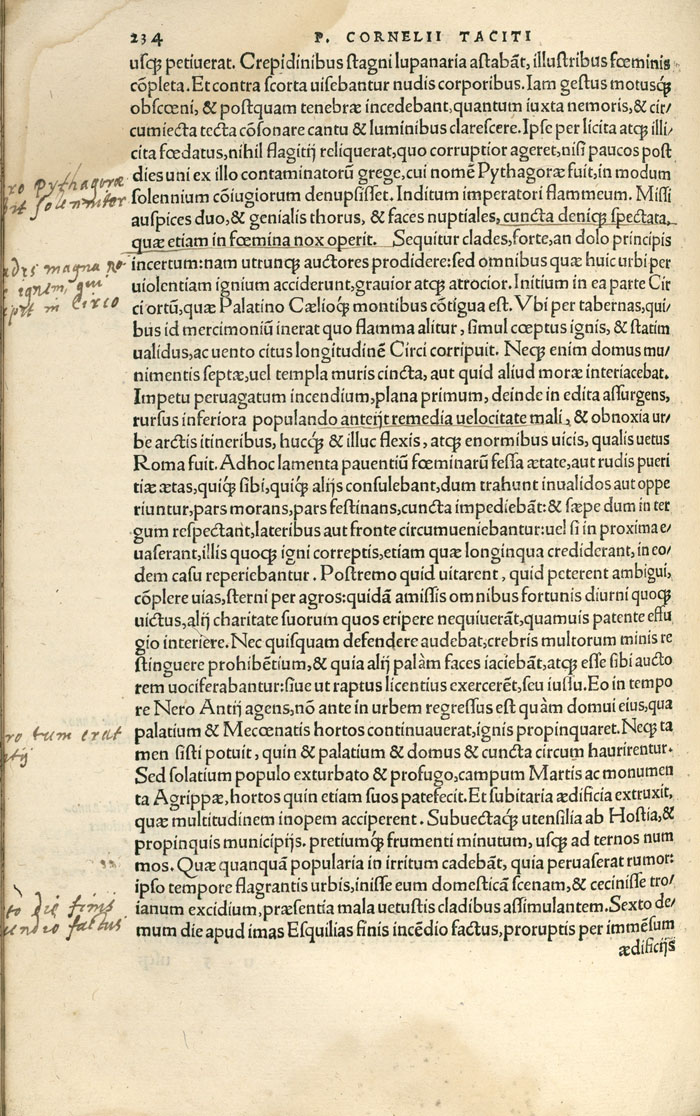 234 P. CORNELII TACITI
usq; petiuerat. Crepidinibus stagni lupanaria astabāt, illustribus fœminis
cōpleta. Et contra scorta uisebantur nudis corporibus. Iam gestus motusq́;
obscœni, & postquam tenebræ incedebant, quantum iuxta nemoris, & cir/
cumiecta tecta cōsonare cantu & luminibus clarescere. Ipse per licita atq; illi/
cita fœdatus, nihil flagitij reliquerat, quo corruptior ageret, nisi paucos post
dies uni ex illo contaminatorū grege, cui nomē Pythagoræ fuit, in modum
ro Pythagoræ
solennium cōiugiorum denupsisset. Inditum imperatori flammeum. Missi
solenniter
auspices duo, & genialis thorus, & faces nuptiales, cuncta deniq; spectata,
quæ etiam in fœmina nox operit. Sequitur clades, forte, an dolo principis
incertum: nam utrunq; auctores prodidere: sed omnibus quæ huic urbi per
magna
uiolentiam ignium acciderunt, grauior atq; atrocior. Initium in ea parte Cir
ignem, qui
ci ortū, quæ Palatino Cælioq; montibus cōtigua est. Vbi per tabernas, qui/
in Circo
bus id mercimoniū inerat quo flamma alitur, simul cœptus ignis, & statim
ualidus, ac uento citus longitudinē Circi corripuit. Neq; enim domus mu/
nimentis septæ, uel templa muris cincta, aut quid aliud moræ interiacebat.
Impetu peruagatum incendium, plana primum, deinde in edita assurgens,
rursus inferiora populando anterijt remedia uelocitate mali, & obnoxia ur/
be arctis itineribus, hucq́; & illuc flexis, atq; enormibus uicis, qualis uetus
Roma fuit. Adhoc lamenta pauentiū fœminarū fessa ætate, aut rudis pueri
tiæ ætas, quiq́; sibi, quiq́; alijs consulebant, dum trahunt inualidos aut oppe
riuntur, pars morans, pars festinans, cuncta impediebāt: & sæpe dum in ter
gum respectant, lateribus aut fronte circumueniebantur: uel si in proxima e/
uaserant, illis quoq; igni correptis, etiam quæ longinqua crediderant, in eo/
dem casu reperiebantur. Postremo quid uitarent, quid peterent ambigui,
cōplere uias, sterni per agros: quidā amissis omnibus fortunis diurni quoq;
uictus, alij charitate suorum quos eripere nequiuerāt, quamuis patente effu
gio interiere. Nec quisquam defendere audebat, crebris multorum minis re
stinguere prohibētium, & quia alij palàm faces iaciebāt, atq; esse sibi aucto
rem uociferabantur: siue ut raptus licentius exercerēt, seu iussu. Eo in tempo
re Nero Antij agens, nō ante in urbem regressus est quàm domui eius, qua
palatium & Mecœnatis hortos continuauerat, ignis propinquaret. Neq; ta
ro tum erat
men sisti potuit, quin & palatium & domus & cuncta circum haurirentur.
tij
Sed solatium populo exturbato & profugo, campum Martis ac monumen
ta Agrippæ, hortos quin etiam suos patefecit. Et subitaria ædificia extruxit,
quæ multitudinem inopem acciperent. Subuectaq́; utensilia ab Hostia, &
propinquis municipijs. pretiumq́; frumenti minutum, usq; ad ternos num
mos. Quæ quanquā popularia in irritum cadebāt, quia peruaserat rumor:
ipso tempore flagrantis urbis, inisse eum domesticā scenam, & cecinisse tro/
ianum excidium, præsentia mala uetustis cladibus assimulantem. Sexto de/
to die finis
mum die apud imas Esquilias finis incēdio factus, proruptis per immēsum
endio factus
ædificijs